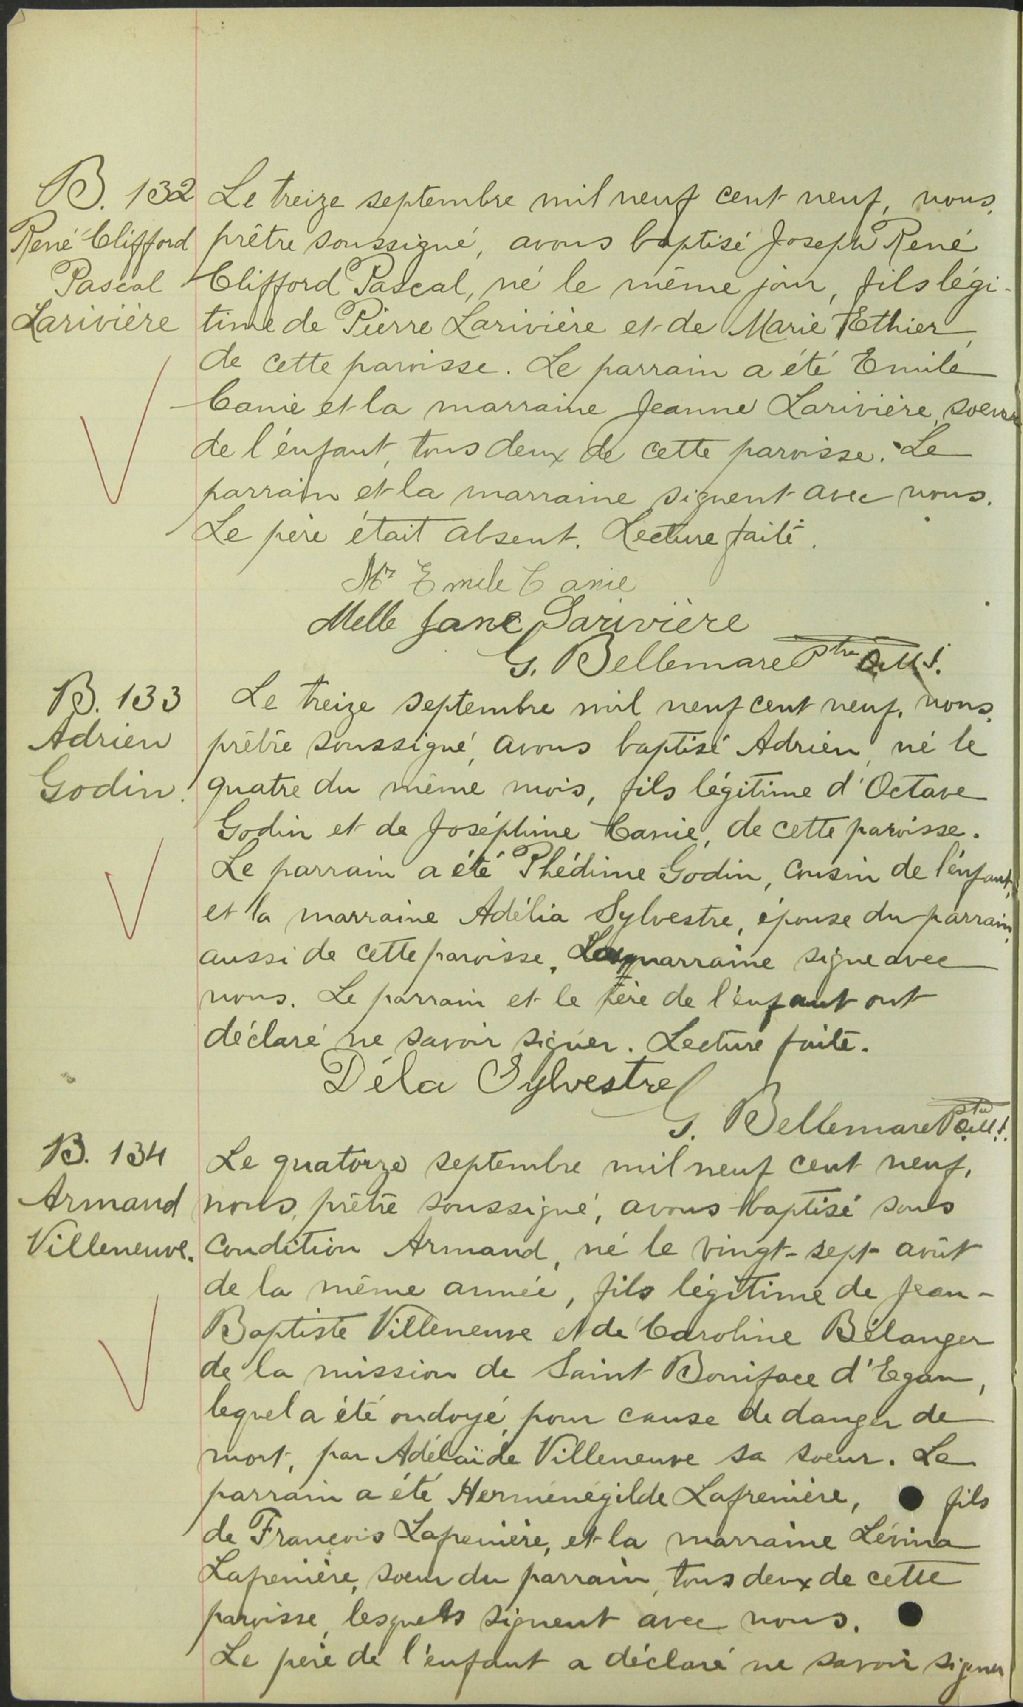 B. 132
René Clifford
Pascal
Larivière
Le treize septembre mil neuf cent neuf, nous,
prêtre soussigné, avons baptisé Joseph René
Clifford Pascal, né le même jour, fils légi-
time de Pierre Larivière et de Marie Ethier,
de cette paroisse. Le parrain a été Emile
Canie et la marraine Jeanne Larivière, soeur
de l'enfant, tous deux de cette paroisse. Le
parrain et la marraine signent avec nous.
Le père était absent. Lecture faite.
Mr Emile Canie
Melle Jane Larivière
G. Bellemare Ptre O.M.I.
B. 133
Adrien
Godin.
Le treize septembre mil neuf cent neuf, nous,
prêtre soussigné, avons baptisé Adrien, né le
quatre du même mois, fils légitime d'Octave
Godin et de Joséphine Canie, de cette paroisse.
Le parrain a été Phédime Godin, cousin de l'enfant,
et la marraine Adélia Sylvestre, épouse du parrain,
aussi de cette paroisse. La marraine signe avec
nous. Le parrain et le Père de l'enfant ont
déclaré ne savoir signer. Lecture faite.
Déla Sylvestre
G. Bellemare Ptre O.M.I.
B. 134
Armand
Villeneuve.
Le quatorze septembre mil neuf cent neuf,
nous, prêtre soussigné, avons baptisé sous
condition Armand, né le vingt-sept août
de la même année, fils légitime de Jean-
Baptiste Villeneuve et de Caroline Bélanger
de la mission de Saint Boniface d'Egan,
lequel a été ondoyé, pour cause de danger de
mort, par Adélaïde Villeneuve sa soeur. Le
parrain a été Herménégilde Lafrenière, fils
de François Lafrenière, et la marraine Lévina
Lafrenière, soeur du parrain, tous deux de cette
paroisse, lesquels signent avec nous.
Le père de l'enfant a déclaré ne savoir signer